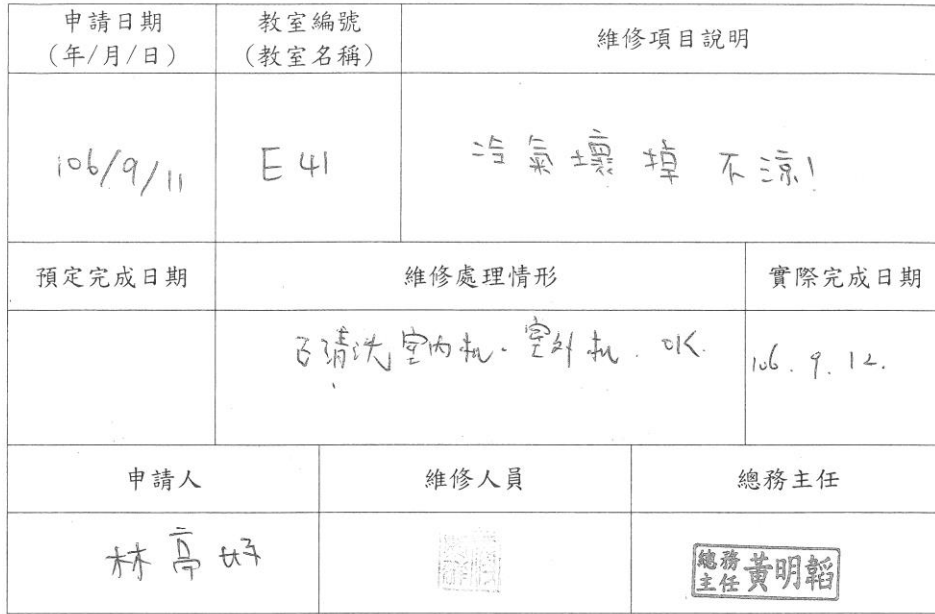 申請日期
(年/月/日)
教室編號
(教室名稱)
維修項目說明
106/9/11
E41
冷氣壞掉 不涼!
預定完成日期
維修處理情形
實際完成日期
已清洗室內机.室外机.OK.
106.9.12.
申請人
維修人員
總務主任
林亭妤
總務
主任
黃明韜